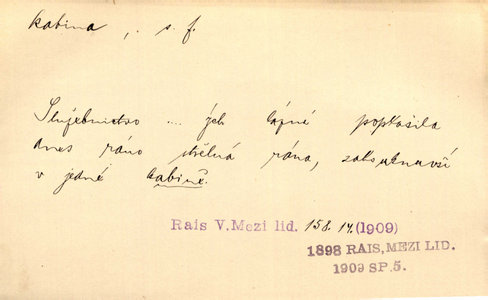 kabina, s. f.
Služebnictvo ... ých lázně poplašila
dnes ráno střelná rána, zahouknuvší
v jedné kabině.
Rais V. Mezi lid. 158. 14. (1909)
1898 RAIS, MEZI LID.
1909 SP. 5.